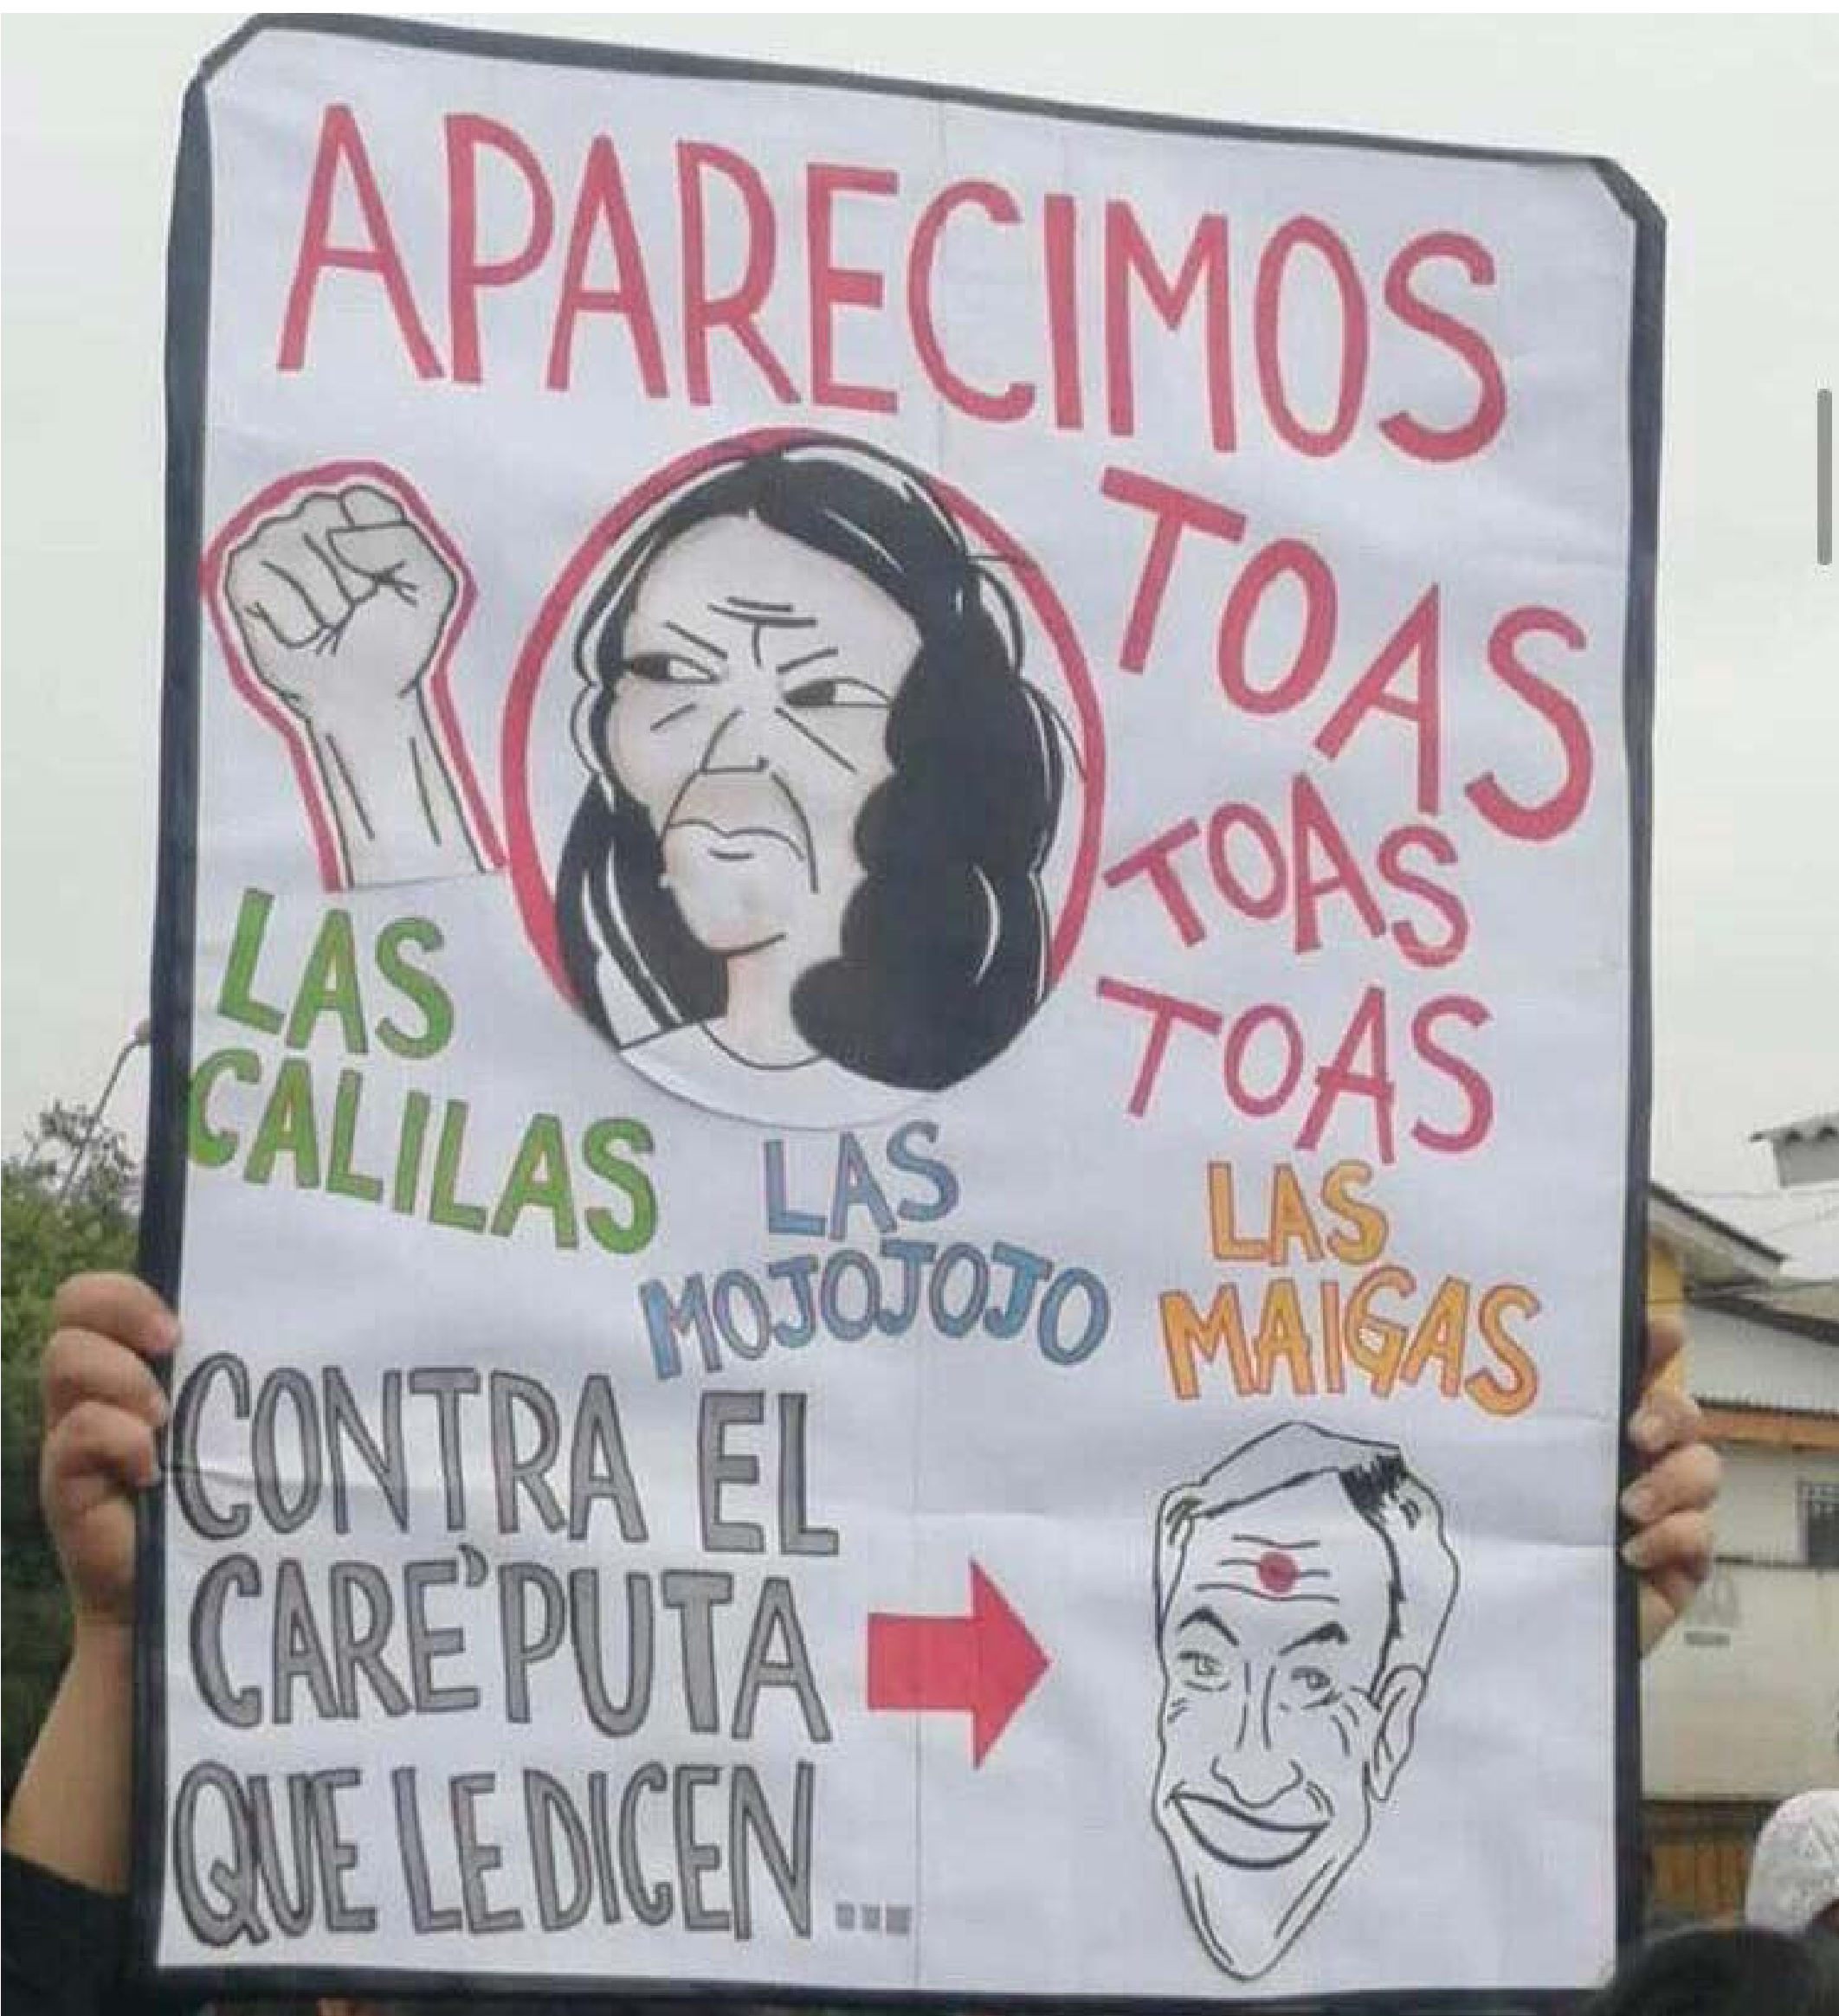 APARECIMOS
TOAS
TOAS
TOAS
LAS
CALILAS
LAS
MOJOJOJO
LAS
MAIGAS
CONTRA EL
CARE'PUTA
QUE LE DICEN...